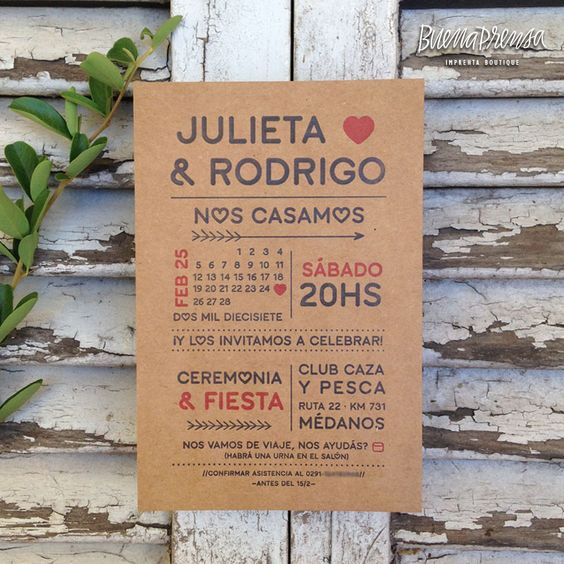 BuenaPrensa
IMPRENTA BOUTIQUE
JULIETA
& RODRIGO
NOS CASAMOS
FEB 25
1 2 3 4
5 6 7 8 9 10 11
12 13 14 15 16 17 18
19 20 21 22 23 24
26 27 28
DOS MIL DIECISIETE
SÁBADO
20HS
¡Y LOS INVITAMOS A CELEBRAR!
CEREMONIA
& FIESTA
CLUB CAZA
Y PESCA
RUTA 22 · KM 731
MÉDANOS
NOS VAMOS DE VIAJE, NOS AYUDÁS?
(HABRÁ UNA URNA EN EL SALÓN)
//CONFIRMAR ASISTENCIA AL 0291- //
—ANTES DEL 15/2—